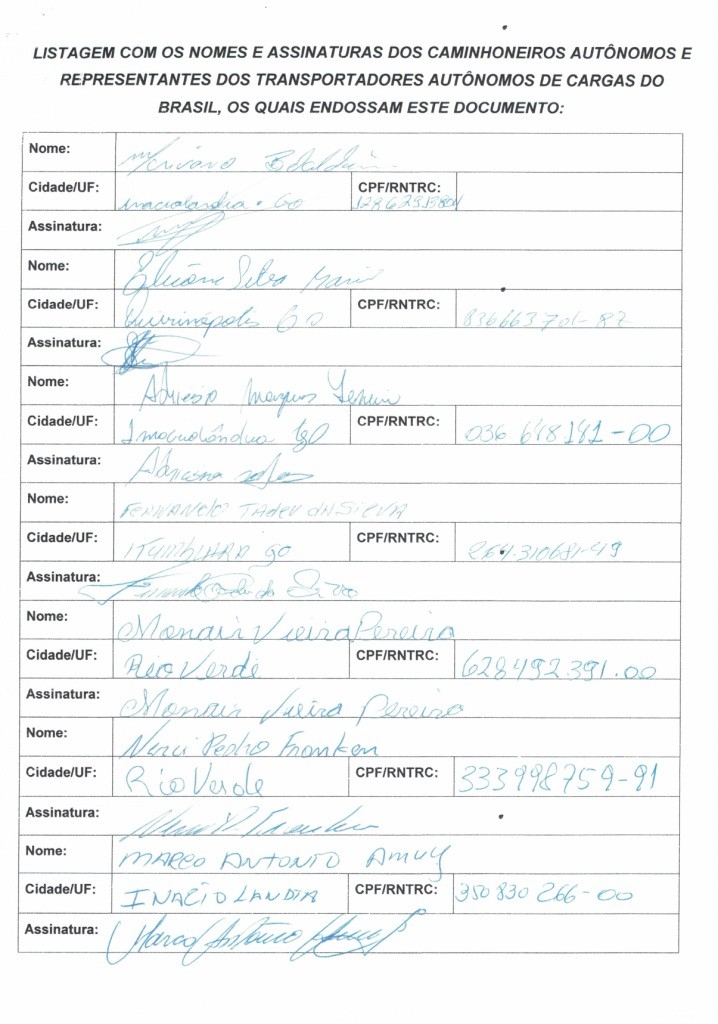 LISTAGEM COM OS NOMES E ASSINATURAS DOS CAMINHONEIROS AUTÔNOMOS E
REPRESENTANTES DOS TRANSPORTADORES AUTÔNOMOS DE CARGAS DO
BRASIL, OS QUAIS ENDOSSAM ESTE DOCUMENTO:
Nome:
Cidade/UF: GO CPF/RNTRC:
Assinatura:
Nome: Silva
Cidade/UF: Quirinópolis GO CPF/RNTRC: 836663701-87
Assinatura:
Nome: Marques
Cidade/UF: CPF/RNTRC: 036 648141-00
Assinatura:
Nome: FERNANDO TADEU DA SILVA
Cidade/UF: GO CPF/RNTRC: 264.310681-49
Assinatura:
Nome: Monair Vieira Pereira
Cidade/UF: Rio Verde CPF/RNTRC: 628492391.00
Assinatura: Monair Vieira Pereira
Nome: Nerci Pedro Franken
Cidade/UF: Rio Verde CPF/RNTRC: 333998759-91
Assinatura:
Nome: MARCO ANTONIO AMUY
Cidade/UF: INACIOLANDIA CPF/RNTRC: 350 830 266-00
Assinatura: Marco Antonio